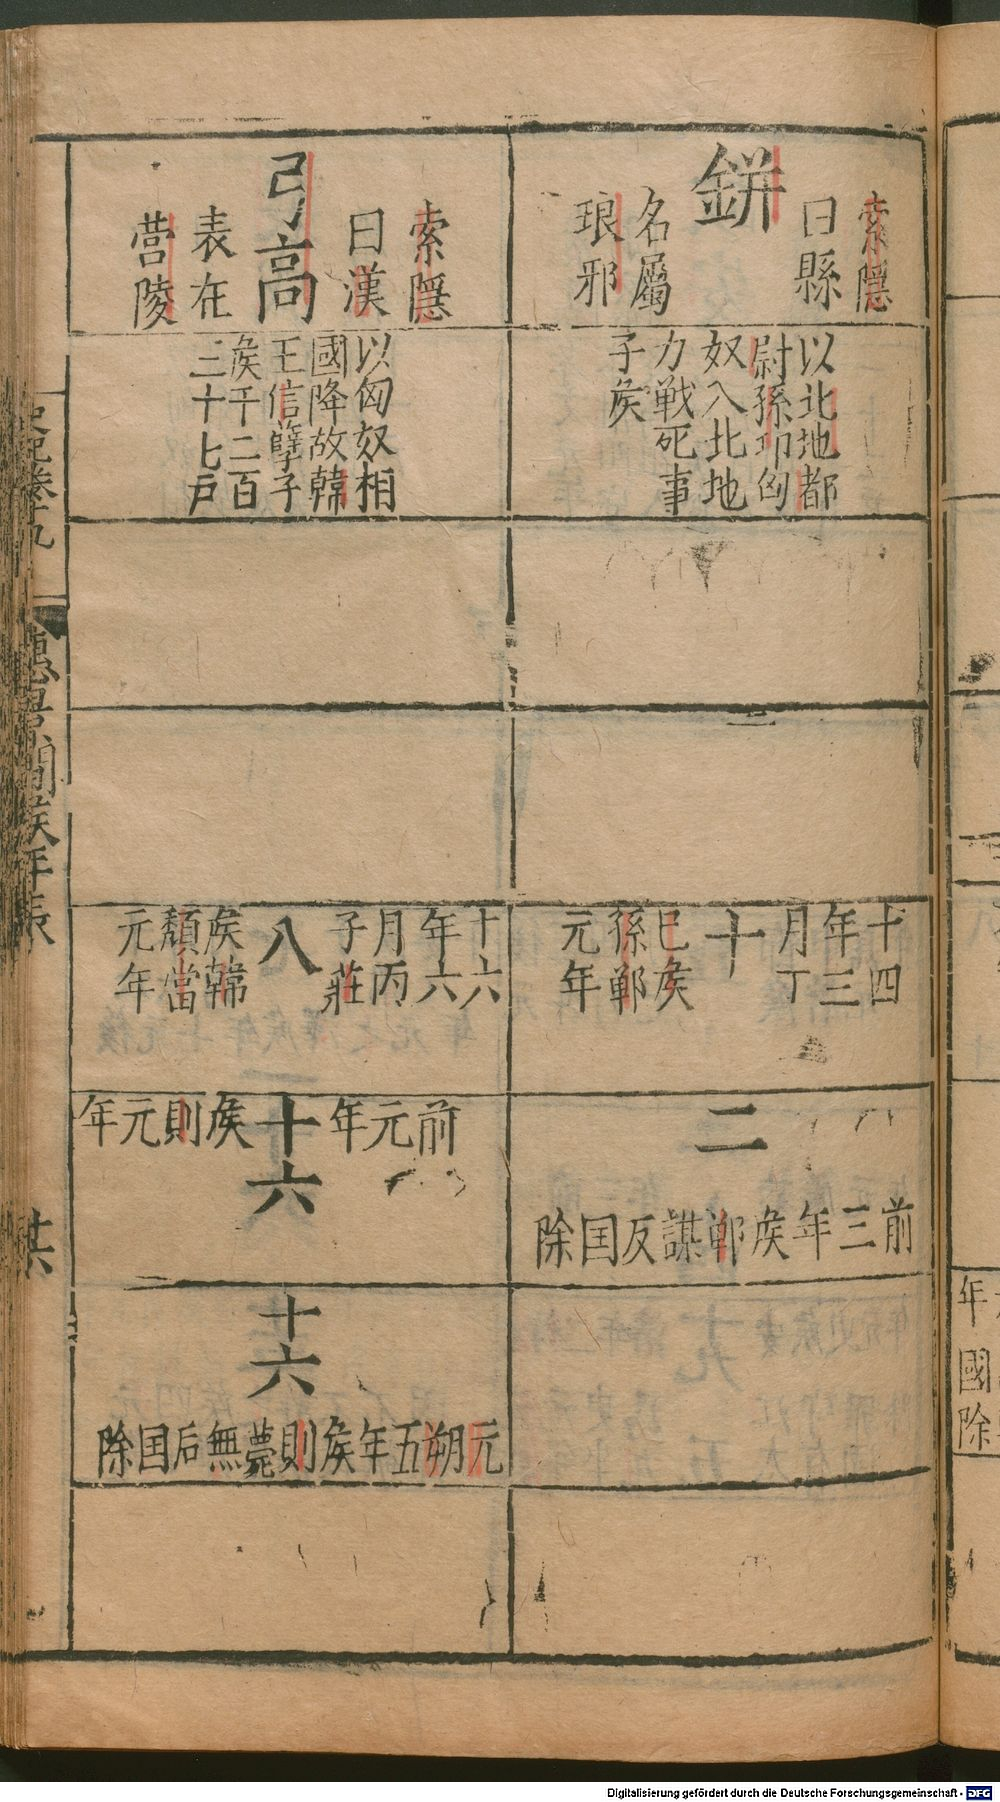 索隱
曰縣
鉼
名屬
琅邪
以北地都
尉孫卬匈
奴入北地
力戰死事
子矦
十四
年三
月丁
十
巳矦
孫鄲
元年
二
前三年矦鄲謀反国除
索隱
曰漢
弓高
表在
營陵
以匈奴相
國降故韓
王信孽子
矦千二百
三十七戶
十六
年六
月丙
子莊
八
矦韓
頹當
元年
前元年
十六
矦則元年
十六
元朔五年矦則薨無后国除
史記卷十九
惠景間矦年表
年
國
除
Digitalisierung gefördert durch die Deutsche Forschungsgemeinschaft - DFG